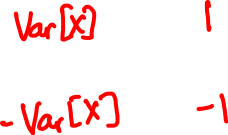 Var[X] 1
-Var[X] -1